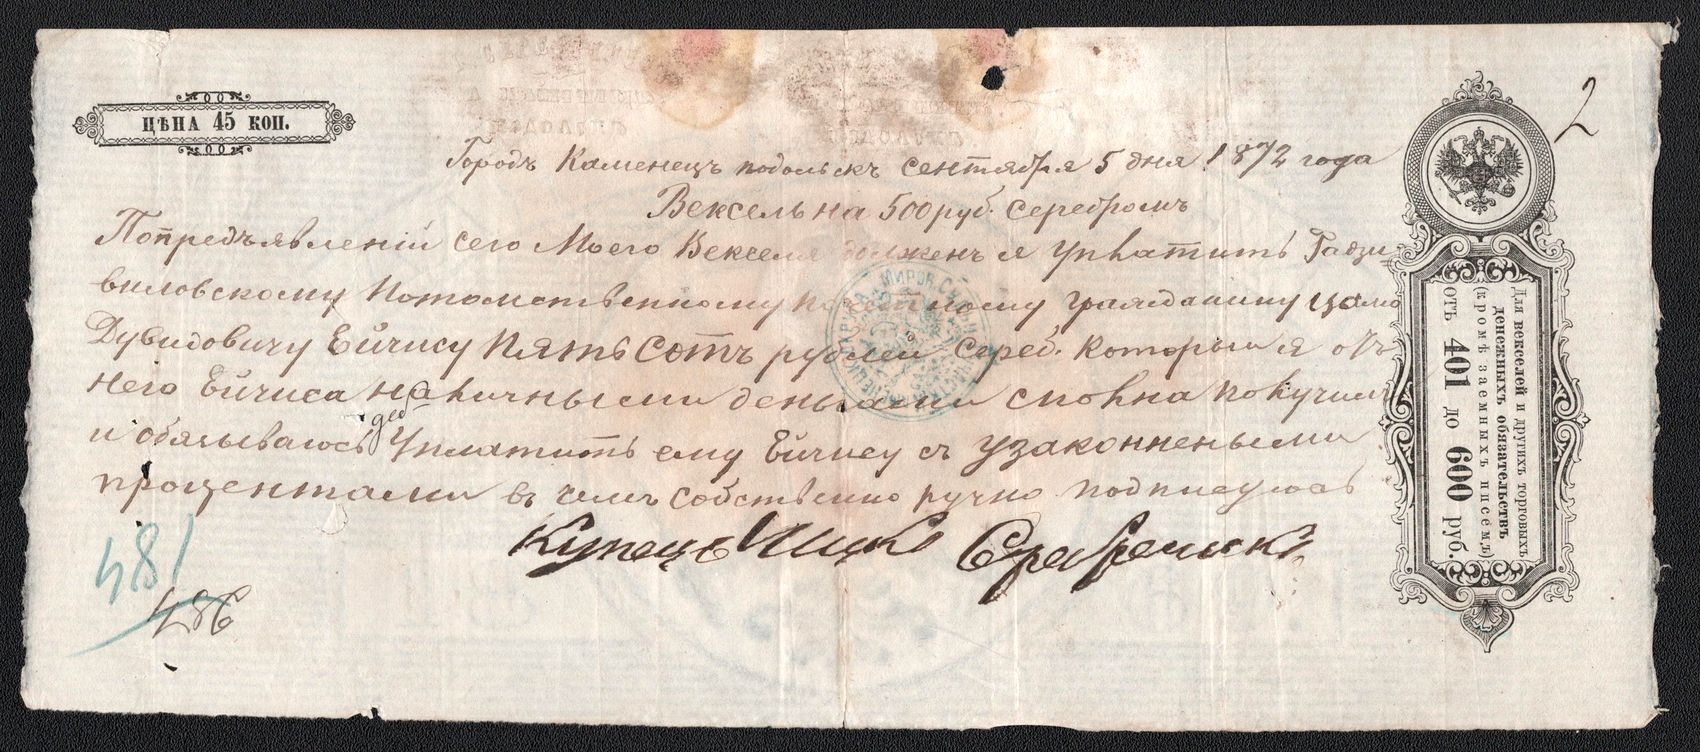 ЦѢНА 45 КОП.
2
Городъ Каменецъ подольскъ сентября 5 дня 1872 года
Вексель на 500 руб. серебромъ
Попредъявленій сего Моего Векселя должен я уплатить Радзи-
виловскому Потомственному почетному гражданину
Дувидовичу Ейчису Пятьсотъ рублей сереб. которыи я отъ
него Ейчиса наличными деньгами сполна получилъ
и обязываюсь Уплатить ему Ейчису съ узаконнеными
процентами в чемъ собственно ручно подписуюсь
Купецъ Ицко Серебреникъ
481
486
Для векселей и другихъ торговыхъ
денежныхъ обязательствъ
(кромѣ заемныхъ писемъ)
отъ 401 до 600 руб.